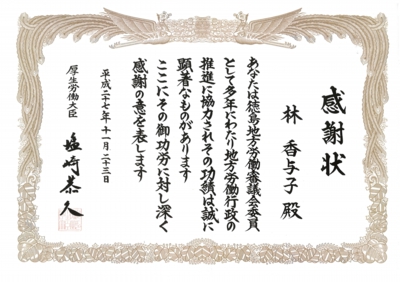 感謝状
林 香与子 殿
あなたは徳島地方労働審議会委員
として多年にわたり地方労働行政の
推進に協力されその功績は誠に
顕著なものがあります
ここにその御功労に対し深く
感謝の意を表します
平成二十七年十一月二十三日
厚生労働大臣
塩崎恭久